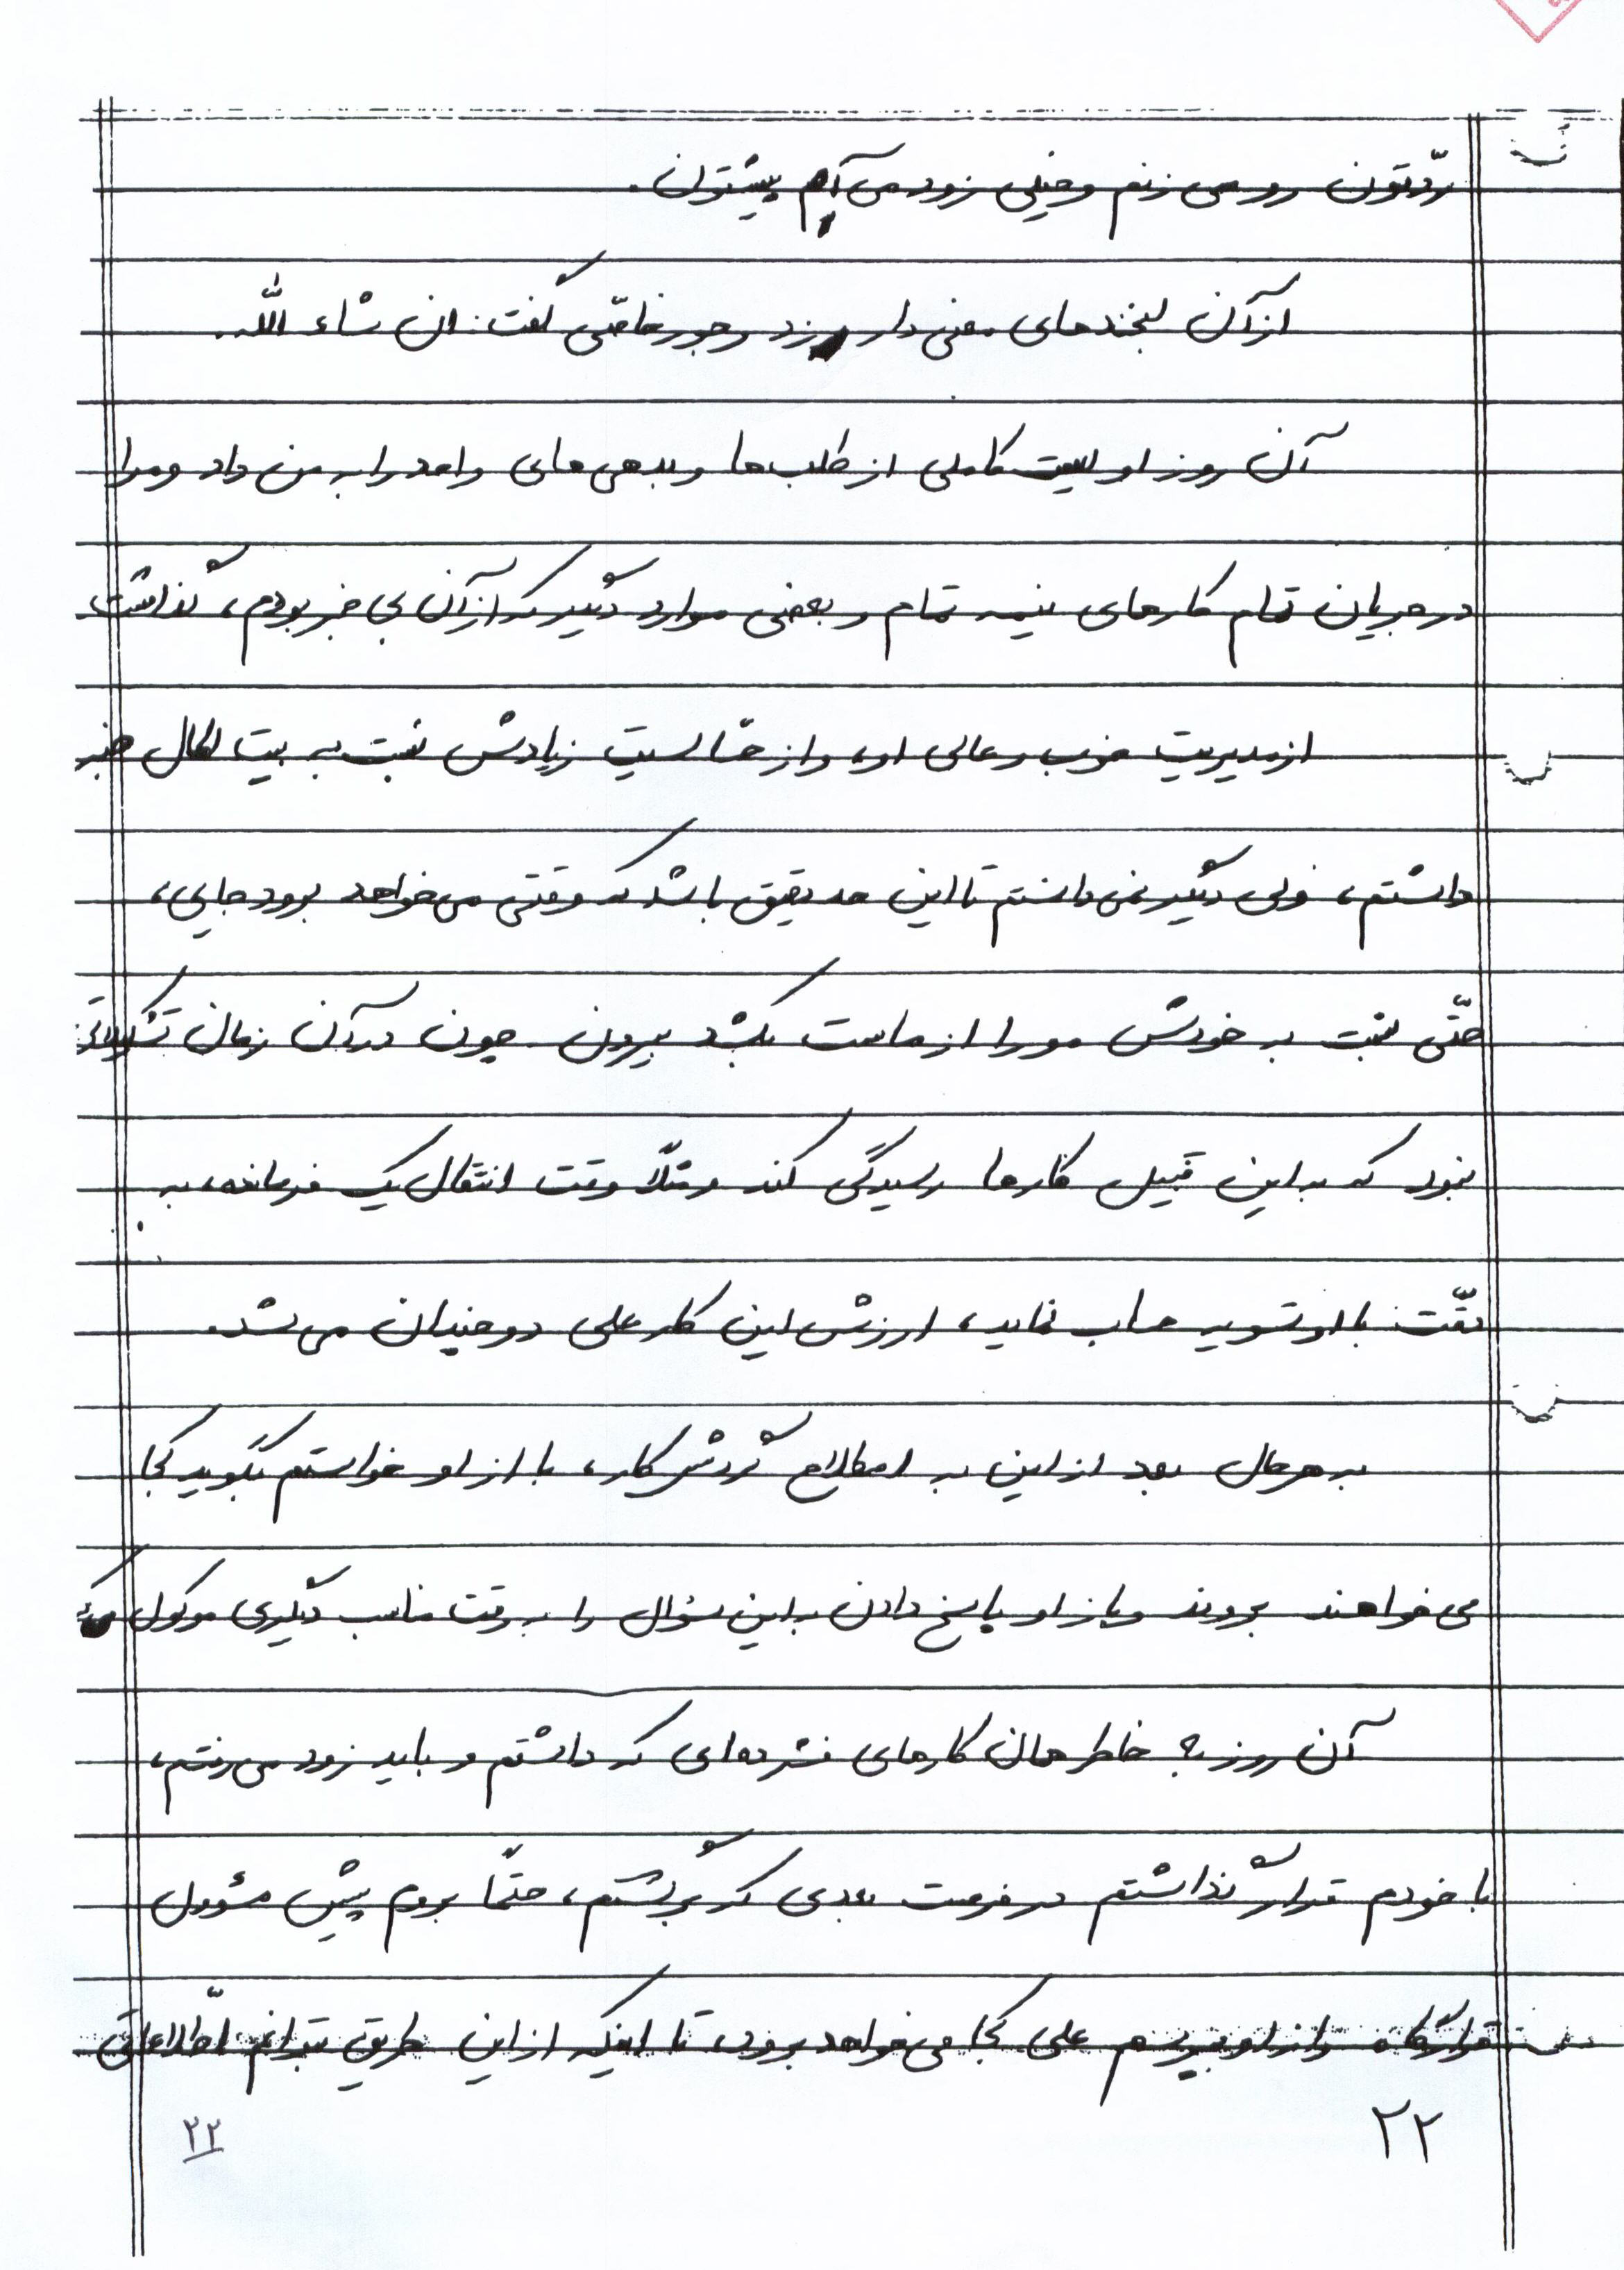 ردّتون رو می زنم و خیلی زود می آیم پیشتون.
از آن لبخندهای معنی دار زد و جور خاصّی گفت: ان شاء الله.
آن روز او لیست کاملی از طلب ها و بدهی های واحد را به من داد و مرا
در جریان تمام کارهای نیمه تمام و بعضی موارد دیگر که از آن بی خبر بودم، گذاشت
از مدیریت خوب و عالی او، و از حسّاسیت زیادش نسبت به بیت المال خبر
داشتم، ولی دیگر نمی دانستم تا این حد دقیق باشد که وقتی می خواهد برود جایی،
حتّی نسبت به خودش مو را از ماست بکشد بیرون. چون در آن زمان تشکیلاتی
نبود که به این قبیل کارها رسیدگی کند و مثلاً وقت انتقال یک فرمانده، به
دقّت با او تسویه حساب نماید، ارزش این کار علی دو چندان می شد.
به هر حال بعد از این به اصطلاح گزارش کار، باز از او خواستم بگوید کجا
می خواهند بروند و باز او پاسخ دادن به این سؤال را به وقت مناسب دیگری موکول
آن روز به خاطر همان کارهای فشرده ای که داشتم و باید زود می رفتم،
با خودم قرار گذاشتم در فرصت بعدی که برگشتم، حتماً بروم پیش مسؤول
قرارگاه و از او بپرسم علی کجا می خواهد برود، تا اینکه از این طریق بتوانم اطّلاعاتی
۲۲
۲۲